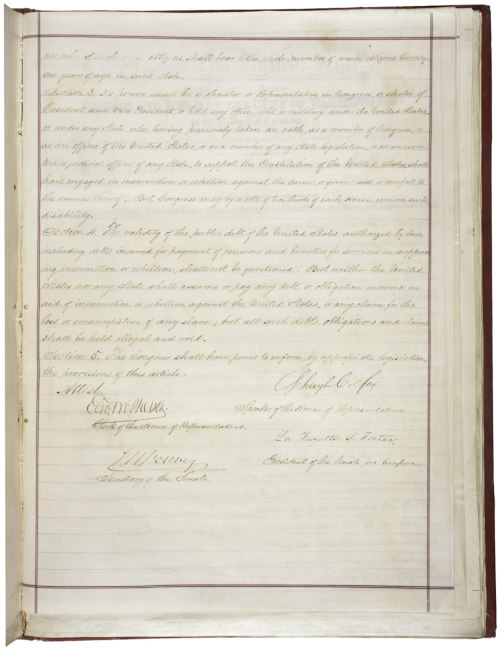 number of such citizens shall bear to the whole number of male citizens twenty
one years of age in such State.
Section 3. No person shall be a Senator or Representative in Congress, or elector of
President and Vice President, or hold any office, civil or military, under the United States,
or under any State, who, having previously taken an oath, as a member of Congress, or
as an officer of the United States, or as a member of any State legislature, or as an execu-
tive or judicial officer of any State, to support the Constitution of the United States, shall
have engaged in insurrection or rebellion against the same, or given aid or comfort to
the enemies thereof. But Congress may by a vote of two thirds of each House, remove such
disability.
Section 4. The validity of the public debt of the United States, authorized by law,
including debts incurred for payment of pensions and bounties for services in suppress-
ing insurrection or rebellion, shall not be questioned. But neither the United
States nor any State shall assume or pay any debt or obligation incurred in
aid of insurrection or rebellion against the United States, or any claim for the
loss or emancipation of any slave; but all such debts, obligations and claims
shall be held illegal and void.
Section 5. The Congress shall have power to enforce, by appropriate legislation,
the provisions of this article.
Attest.
Schuyler Colfax
Edw McPherson
Speaker of the House of Representatives.
Clerk of the House of Representatives.
La Fayette S. Foster
J W Forney
President of the Senate pro tempore.
Secretary of the Senate.